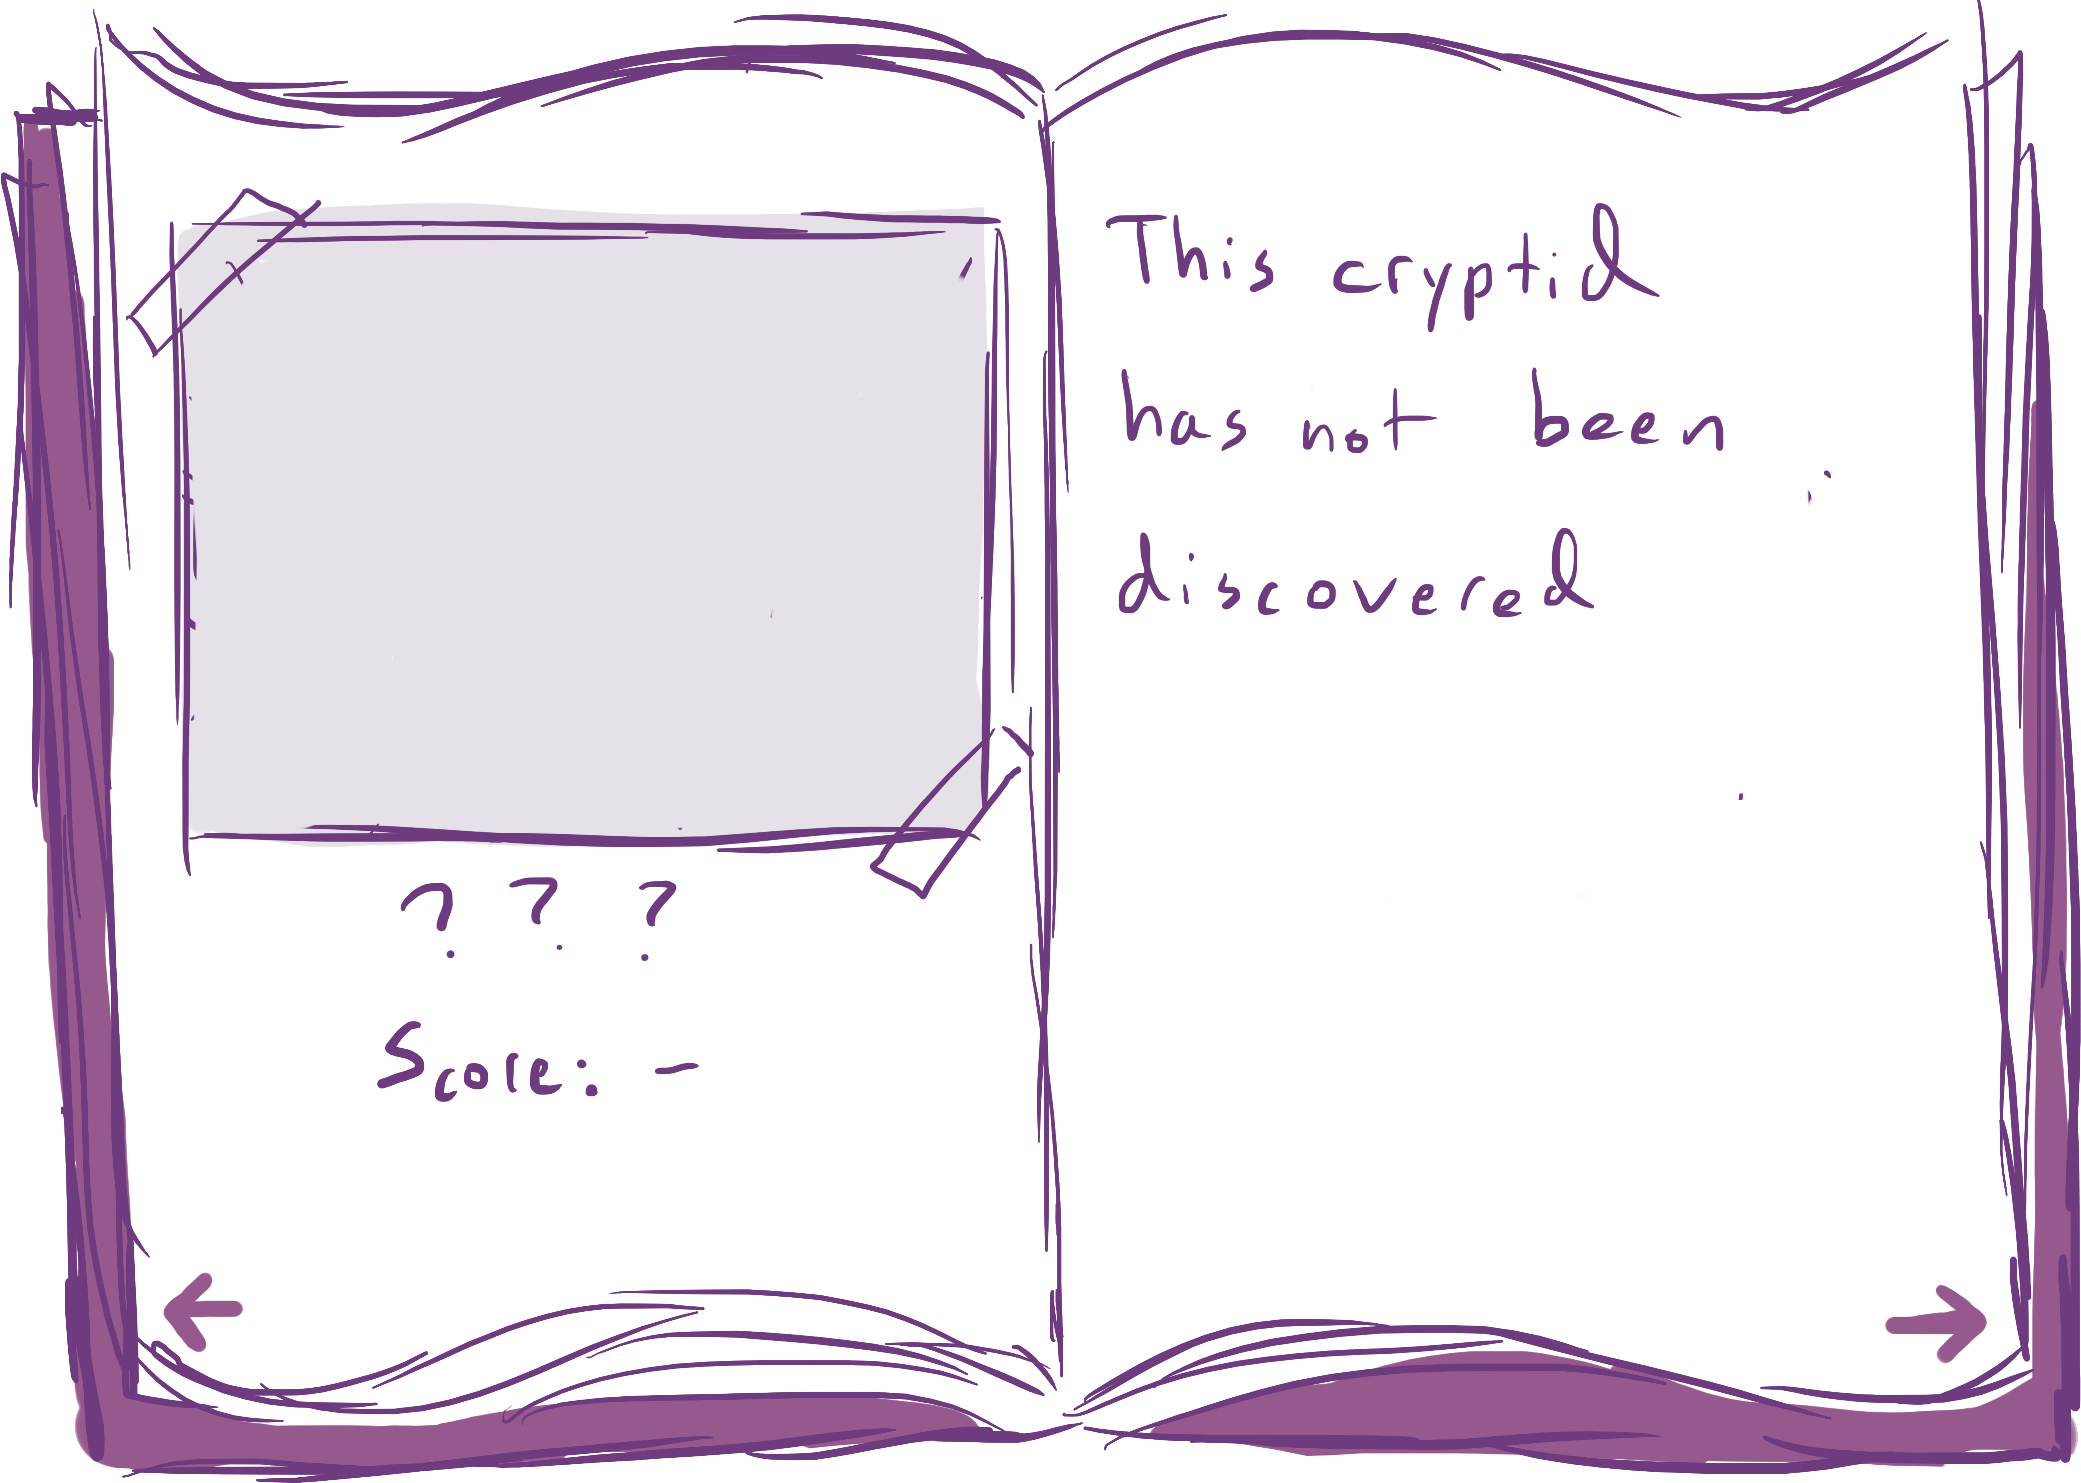 ? ? ?
Score: -
This cryptid
has not been
discovered